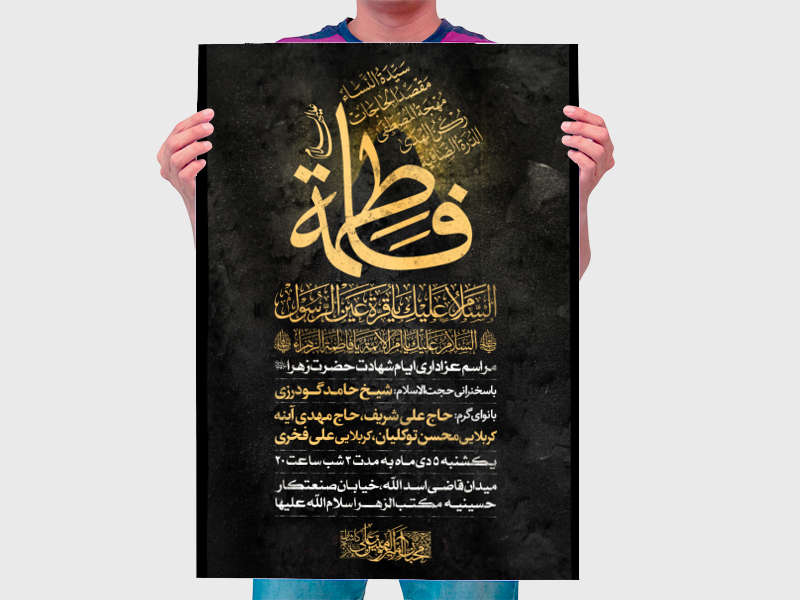 سَيِّدَةُ النِّسَاء
مَقْصَدُ الحَاجَات
مُهْجَةُ المُصْطَفَى
رُكْنُ الهُدَى
فاطِمَة
السَّلامُ عَلَيْكَ يا قُرَّةَ عَيْنِ الرَّسُول
السلام علیک یا ام الائمة یا فاطمة الزهراء
مراسم عزاداری ایام شهادت حضرت زهرا
باسخنرانی حجت الاسلام: شیخ حامد گودرزی
بانوای گرم: حاج علی شریف، حاج مهدی آینه
کربلایی محسن توکلیان، کربلایی علی فخری
یکشنبه ۵ دی ماه به مدت ۳ شب ساعت ۲۰
میدان قاضی اسد الله، خیابان صنعتکار
حسینیه مکتب الزهرا سلام الله علیها